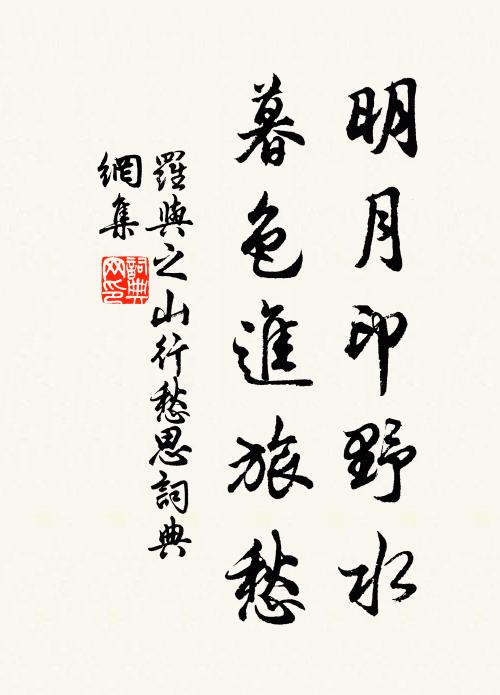 明月印野水
暮色進旅愁
羅與之山行愁思詞典
網集
詞典
網印